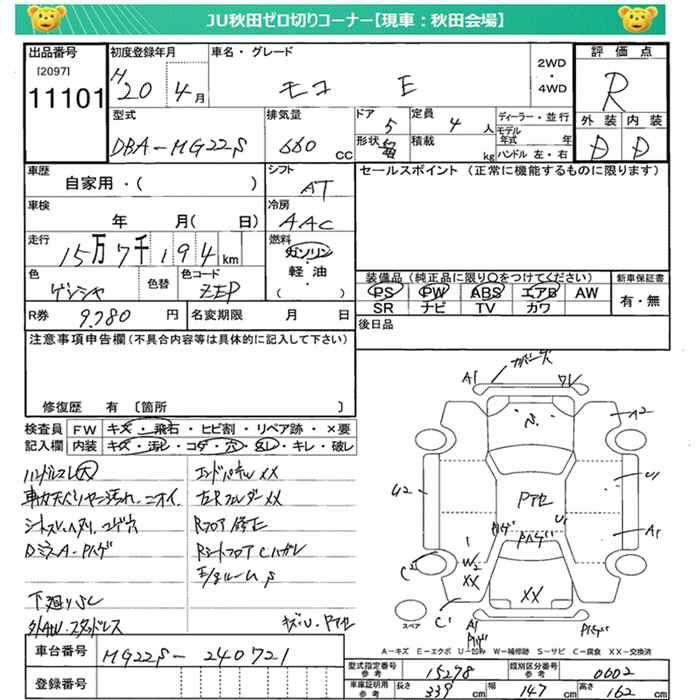 JU秋田ゼロ切りコーナー【現車：秋田会場】
出品番号
[2097]
11101
初度登録年月
H20 4月
車名・グレード
モコ E
2WD
・
4WD
評価点
R
外装 内装
D D
型式
DBA-MG22S
排気量
660 cc
ドア
5
形状
定員
4 人
積載
kg
ディーラー・並行
モデル
年式 年
ハンドル 左・右
車歴
自家用・( )
シフト
AT
セールスポイント (正常に機能するものに限ります)
車検
年 月( 日)
冷房
AAC
走行
15万7千194km
燃料
ガソリン
・
軽油
( )
色
ゲンシャ
色替
色コード
ZEP
装備品 (純正品に限り○をつけてください)
PS PW ABS エアB AW
SR ナビ TV カワ
新車保証書
有・無
R券 9.780 円
名変期限 月 日
後日品
注意事項申告欄 (不具合内容等は具体的に記入して下さい)
修復歴 有 〔箇所 〕
検査員
記入欄
FW キズ・飛石・ヒビ割・リペア跡・×要
内装 キズ・汚レ・コゲ・穴・スレ・キレ・破レ
ハンドルスレ大
シートスレ・ヘタリ、コゲ穴
DミラーA・Pハゲ
下廻りSC
エンドパネルXX
Rフロア修正
キズU・Pアセ
A1
A2
U1
A1
U2
Pアセ
Pハゲ
Pハゲ
U1
W2
XX
XX
C
C1
A1
Pハゲ
Pハゲ
スペア
A-キズ E-エクボ U-凹み W-補修跡 S-サビ C-腐食 XX-交換済
車台番号
MG22S-240721
登録番号
型式指定番号
参考
15278
類別区分番号
参考
0002
車庫証明用
参考
長さ 339 cm
幅 147 cm
高さ 162 cm